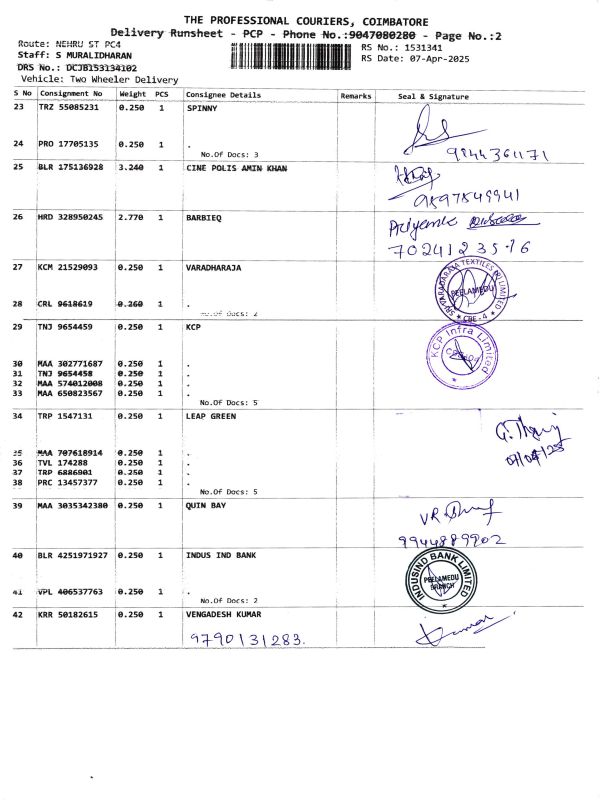 THE PROFESSIONAL COURIERS, COIMBATORE
Delivery Runsheet - PCP - Phone No.:9047080280 - Page No.:2
Route: NEHRU ST PC4
RS No.: 1531341
Staff: S MURALIDHARAN
RS Date: 07-Apr-2025
DRS No.: DCJB153134102
Vehicle: Two Wheeler Delivery
S No Consignment No Weight PCS Consignee Details Remarks Seal & Signature
23 TRZ 55085231 0.250 1 SPINNY
24 PRO 17705135 0.250 1 .
No.Of Docs: 3
9844361171
25 BLR 175136928 3.240 1 CINE POLIS AMIN KHAN
9597849941
26 HRD 328950245 2.770 1 BARBIEQ
Priyanka
7024123576
27 KCM 21529093 0.250 1 VARADHARAJA
SRI VARADARAJA TEXTILES (P) LIMITED
PEELAMEDU
CBE - 4
28 CRL 9618619 0.260 1 .
No.Of Docs: 2
29 TNJ 9654459 0.250 1 KCP
KCP Infra Limited
30 MAA 302771687 0.250 1 .
31 TNJ 9654458 0.250 1 .
32 MAA 574012008 0.250 1 .
33 MAA 650823567 0.250 1 .
No.Of Docs: 5
34 TRP 1547131 0.250 1 LEAP GREEN
35 MAA 707618914 0.250 1 .
36 TVL 174288 0.250 1 .
37 TRP 6886901 0.250 1 .
38 PRC 13457377 0.250 1 .
No.Of Docs: 5
39 MAA 3035342380 0.250 1 QUIN BAY
9944889902
40 BLR 4251971927 0.250 1 INDUS IND BANK
INDUSIND BANK LIMITED
PEELAMEDU
BRANCH
41 VPL 406537763 0.250 1 .
No.Of Docs: 2
42 KRR 50182615 0.250 1 VENGADESH KUMAR
9790131283.